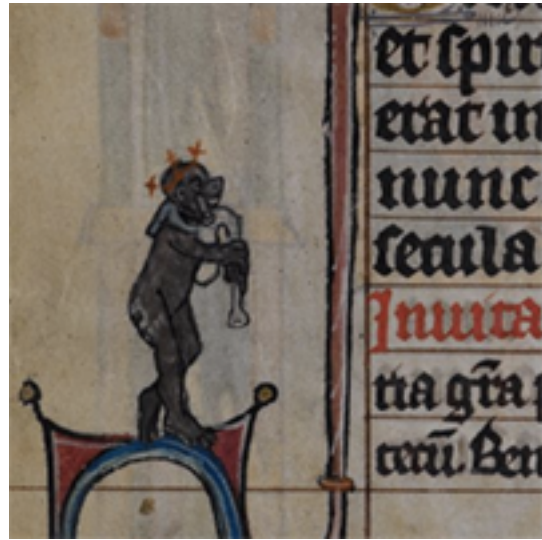 et spir
erat in
nunc
secula
Inuita
ria gr̃a p
tecũ. Ben